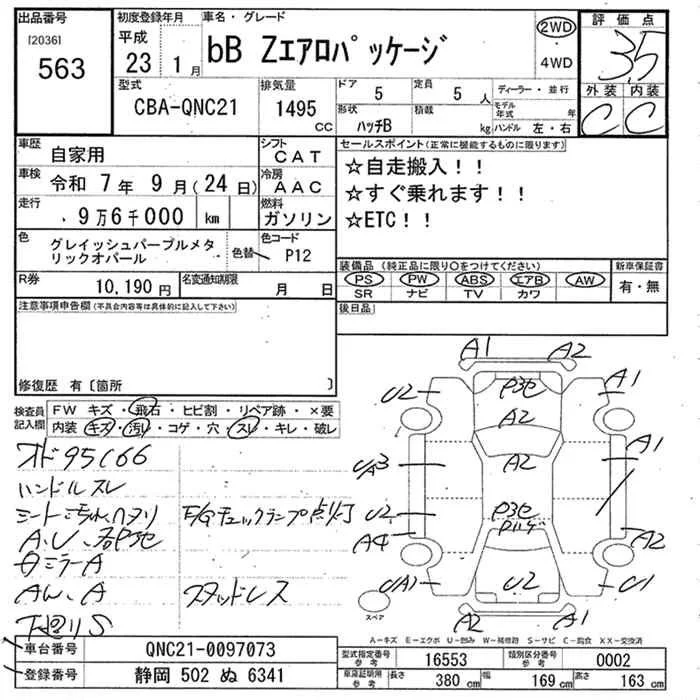 出品番号
[2036]
563
初度登録年月
平成
23 1月
車名・グレード
bB Zエアロパッケージ
2WD
・
4WD
評価点
3.5
外装 内装
C C
型式
CBA-QNC21
排気量
1495
CC
ドア 5
定員 5 人
形状
ハッチB
積載
kg
ディーラー・並行
モデル年式 年
ハンドル 左・右
車歴
自家用
シフト
CAT
車検
令和 7年 9月(24日)
冷房
AAC
走行
9万6千000 km
燃料
ガソリン
色
グレイッシュパープルメタ
リックオパール
色替
色コード
P12
R券
10,190円
名変通知期限
月 日
セールスポイント(正常に機能するものに限ります)
☆自走搬入!!
☆すぐ乗れます!!
☆ETC!!
装備品(純正品に限り○をつけてください)
PS PW ABS エアB AW
SR ナビ TV カワ
新車保証書
有・無
後日品
注意事項申告欄(不具合内容等は具体的に記入して下さい)
修復歴 有〔箇所 〕
検査員
記入欄
FW キズ・飛石・ヒビ割・リペア跡・×要
内装 キズ・汚れ・コゲ・穴・スレ・キレ・破レ
ハンドルスレ
F/Gチェックランプ点灯
ミラーA
スタッドレス
下廻りS
A1 A2
U2 A1
A2
A2
A1
U2
A4 A2
U2
A2 A1
スペア
A-キズ E-エクボ U-凹み W-補修跡 S-サビ C-腐食 XX-交換済
車台番号
QNC21-0097073
登録番号
静岡 502 ぬ 6341
型式指定番号
参考
16553
類別区分番号
参考
0002
車庫証明用
参考
長さ 380 cm
幅 169 cm
高さ 163 cm